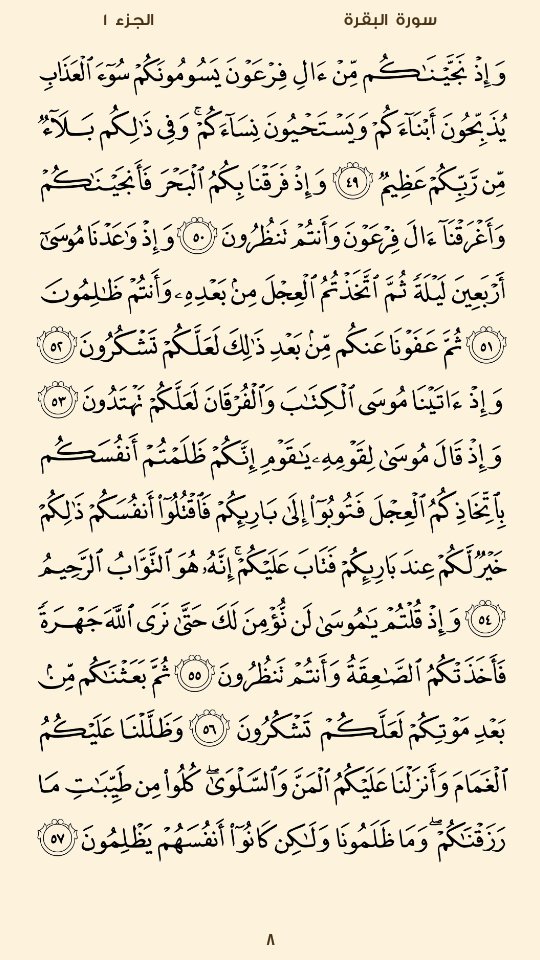 سورة البقرة
الجزء ١
وَإِذْ نَجَّيْنَٰكُم مِّنْ ءَالِ فِرْعَوْنَ يَسُومُونَكُمْ سُوٓءَ ٱلْعَذَابِ
يُذَبِّحُونَ أَبْنَآءَكُمْ وَيَسْتَحْيُونَ نِسَآءَكُمْ ۚ وَفِى ذَٰلِكُم بَلَآءٌ
مِّن رَّبِّكُمْ عَظِيمٌ ٤٩ وَإِذْ فَرَقْنَا بِكُمُ ٱلْبَحْرَ فَأَنجَيْنَٰكُمْ
وَأَغْرَقْنَآ ءَالَ فِرْعَوْنَ وَأَنتُمْ تَنظُرُونَ ٥٠ وَإِذْ وَٰعَدْنَا مُوسَىٰٓ
أَرْبَعِينَ لَيْلَةً ثُمَّ ٱتَّخَذْتُمُ ٱلْعِجْلَ مِنۢ بَعْدِهِۦ وَأَنتُمْ ظَٰلِمُونَ
٥١ ثُمَّ عَفَوْنَا عَنكُم مِّنۢ بَعْدِ ذَٰلِكَ لَعَلَّكُمْ تَشْكُرُونَ ٥٢
وَإِذْ ءَاتَيْنَا مُوسَى ٱلْكِتَٰبَ وَٱلْفُرْقَانَ لَعَلَّكُمْ تَهْتَدُونَ ٥٣
وَإِذْ قَالَ مُوسَىٰ لِقَوْمِهِۦ يَٰقَوْمِ إِنَّكُمْ ظَلَمْتُمْ أَنفُسَكُم
بِٱتِّخَاذِكُمُ ٱلْعِجْلَ فَتُوبُوٓا۟ إِلَىٰ بَارِئِكُمْ فَٱقْتُلُوٓا۟ أَنفُسَكُمْ ذَٰلِكُمْ
خَيْرٌ لَّكُمْ عِندَ بَارِئِكُمْ فَتَابَ عَلَيْكُمْ ۚ إِنَّهُۥ هُوَ ٱلتَّوَّابُ ٱلرَّحِيمُ
٥٤ وَإِذْ قُلْتُمْ يَٰمُوسَىٰ لَن نُّؤْمِنَ لَكَ حَتَّىٰ نَرَى ٱللَّهَ جَهْرَةً
فَأَخَذَتْكُمُ ٱلصَّٰعِقَةُ وَأَنتُمْ تَنظُرُونَ ٥٥ ثُمَّ بَعَثْنَٰكُم مِّنۢ
بَعْدِ مَوْتِكُمْ لَعَلَّكُمْ تَشْكُرُونَ ٥٦ وَظَلَّلْنَا عَلَيْكُمُ
ٱلْغَمَامَ وَأَنزَلْنَا عَلَيْكُمُ ٱلْمَنَّ وَٱلسَّلْوَىٰ ۖ كُلُوا۟ مِن طَيِّبَٰتِ مَا
رَزَقْنَٰكُمْ ۖ وَمَا ظَلَمُونَا وَلَٰكِن كَانُوٓا۟ أَنفُسَهُمْ يَظْلِمُونَ ٥٧
٨